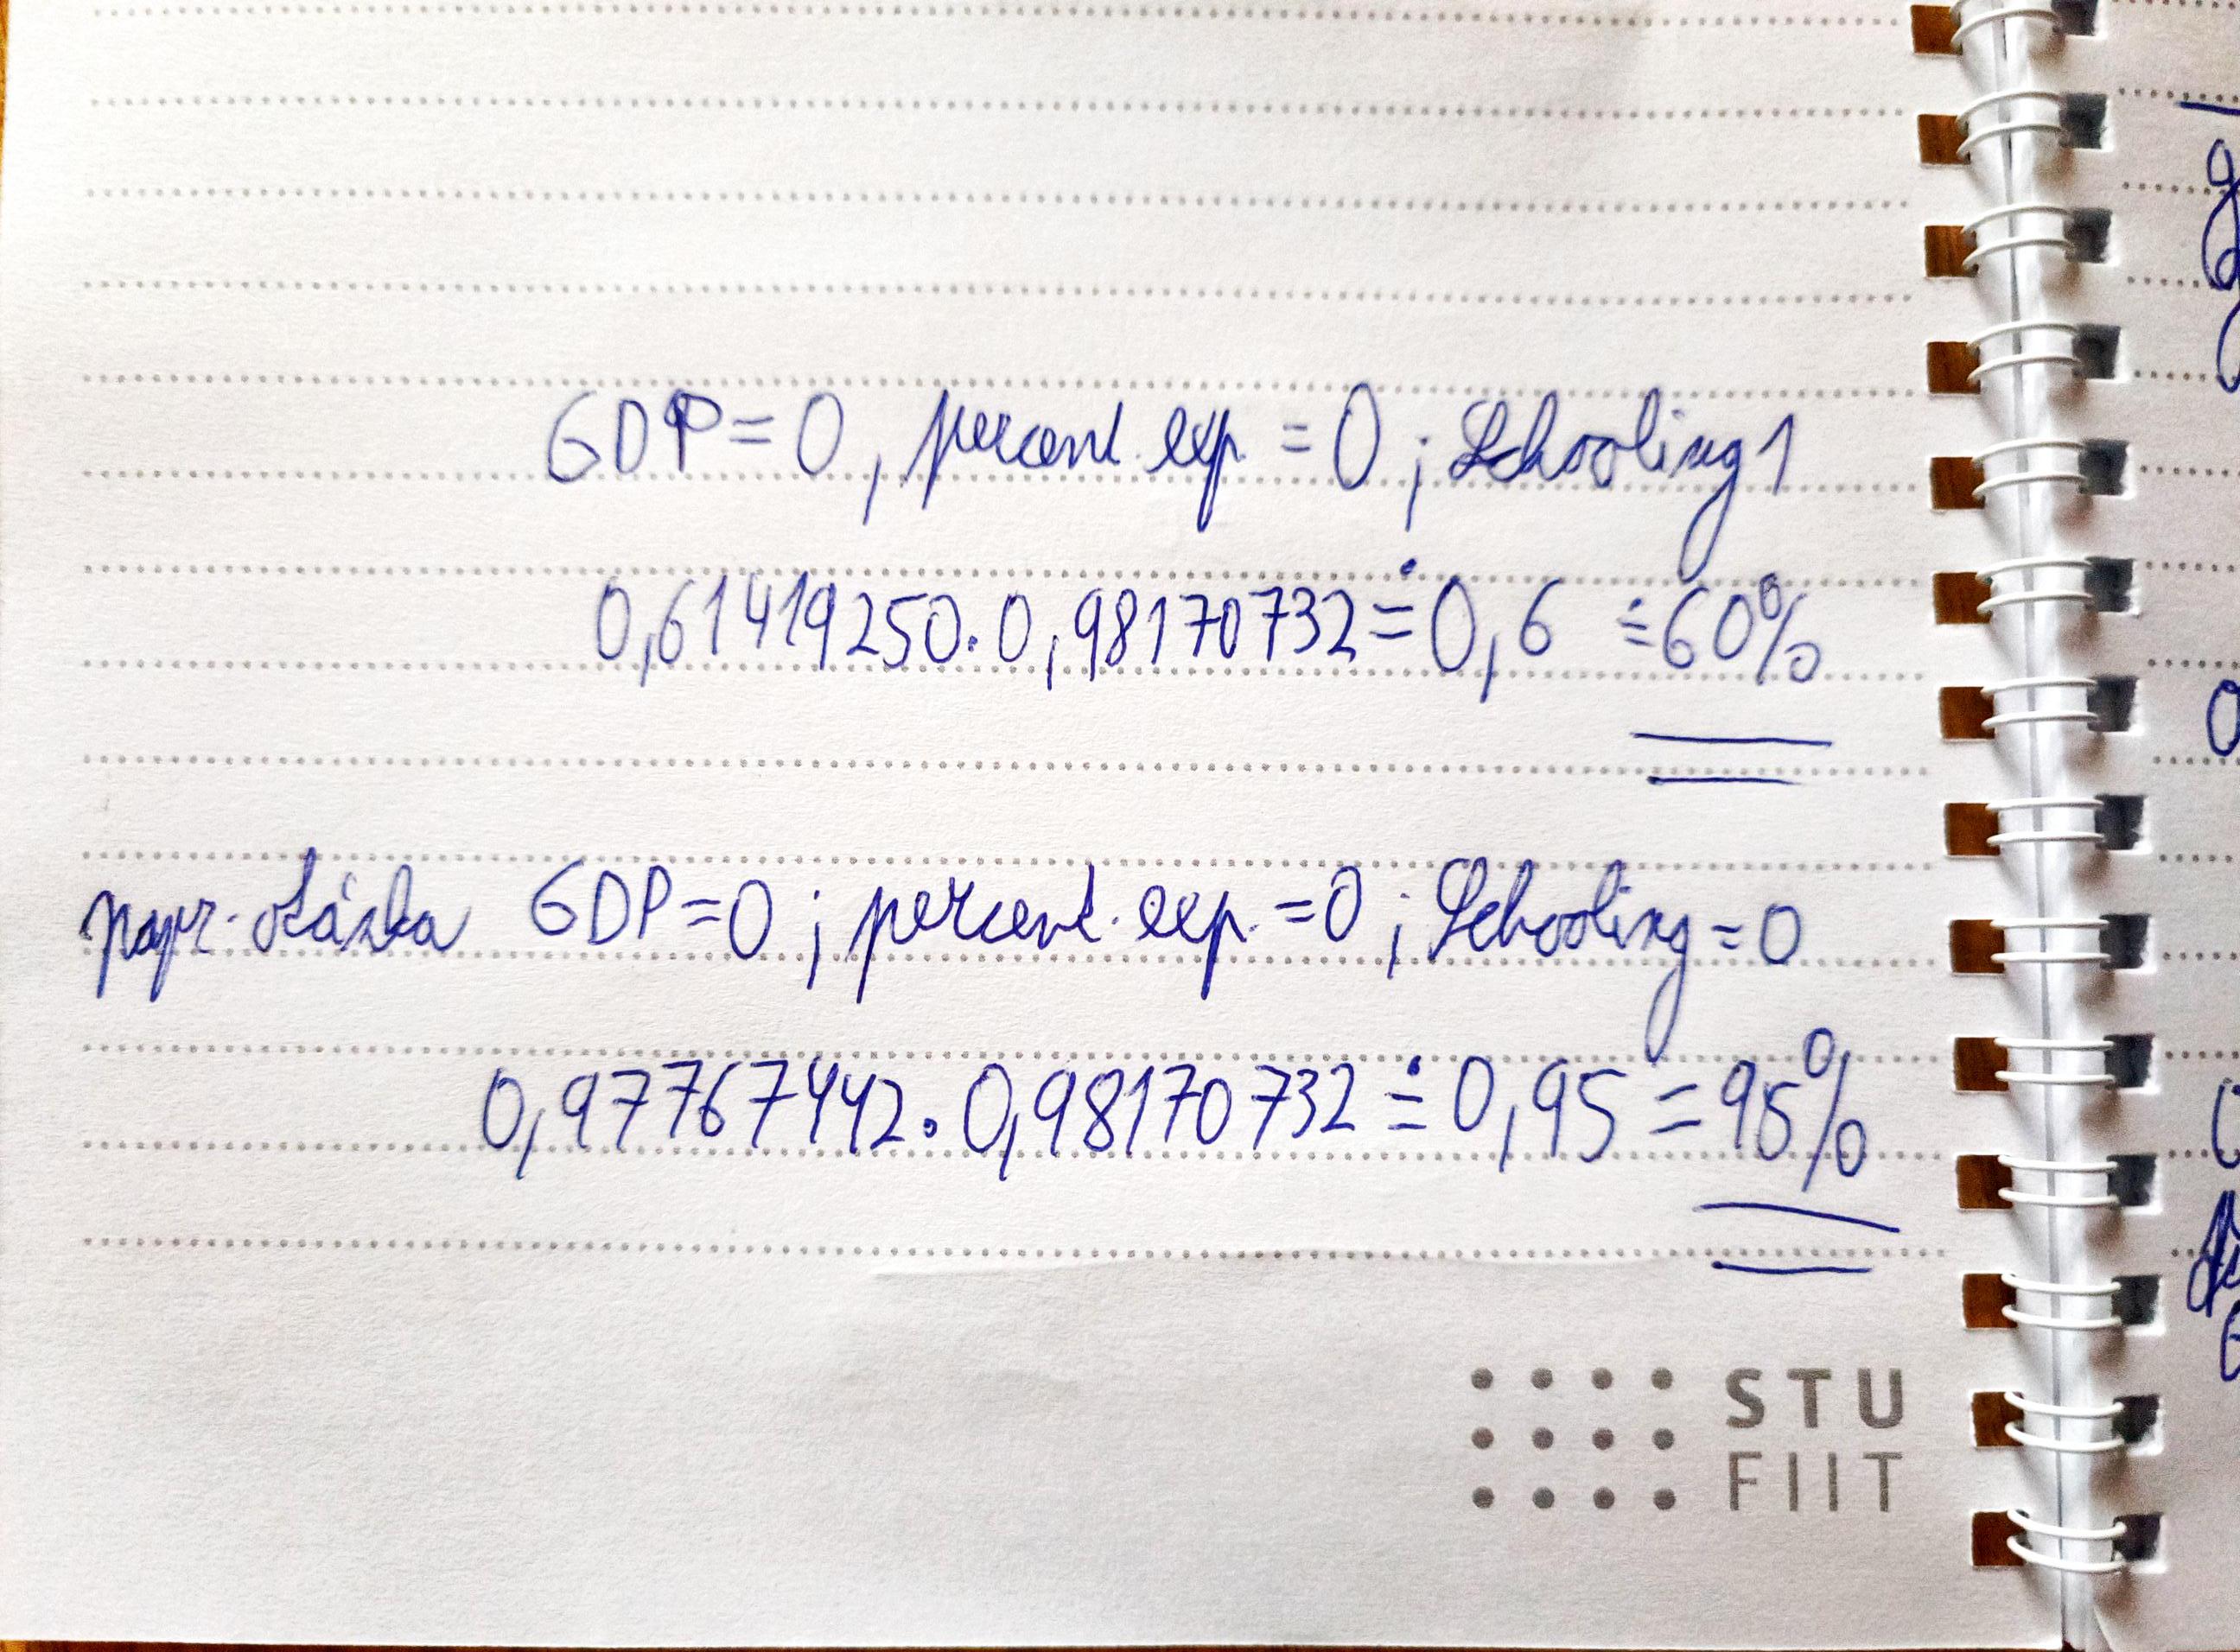 GDP=0, percent.exp.=0; Schooling 1
0,61419250.0,98170732≐0,6 ≐60%
GDP=0; percent.exp.=0; Schooling=0
0,97767442.0,98170732≐0,95=95%
STU
FIIT